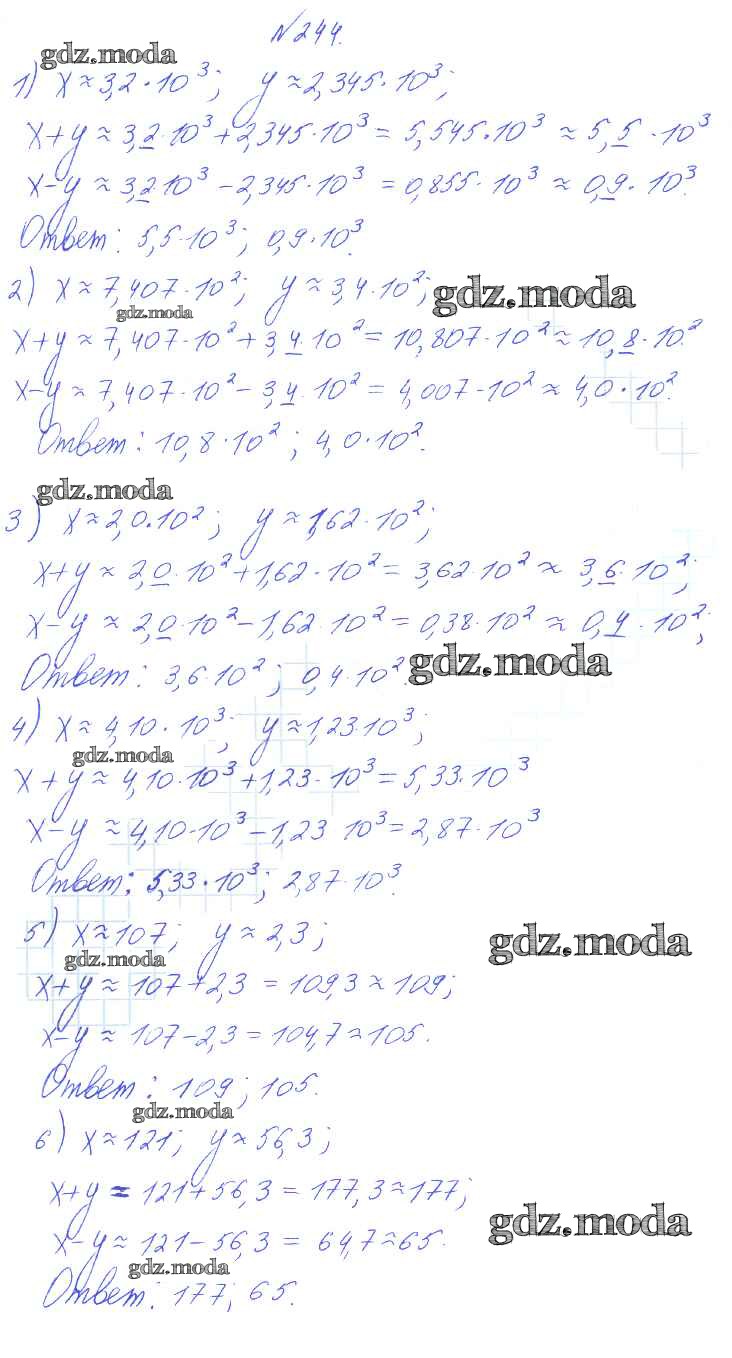 № 244.
gdz.moda
1) x ≈ 3,2·10³; y ≈ 2,345·10³;
x+y ≈ 3,2·10³+2,345·10³ = 5,545·10³ ≈ 5,5·10³
x-y ≈ 3,2 10³-2,345·10³ = 0,855·10³ ≈ 0,9·10³.
Ответ: 5,5·10³; 0,9·10³.
2) x ≈ 7,407·10²; y ≈ 3,4·10²; gdz.moda
gdz.moda
x+y ≈ 7,407·10²+3,4·10² = 10,807·10² ≈ 10,8·10².
x-y ≈ 7,407·10²-3,4·10² = 4,007·10² ≈ 4,0·10².
Ответ: 10,8·10²; 4,0·10².
gdz.moda
3) x ≈ 2,0·10²; y ≈ 1,62·10²;
x+y ≈ 2,0·10²+1,62·10² = 3,62·10² ≈ 3,6·10²;
x-y ≈ 2,0·10²-1,62·10² = 0,38·10² ≈ 0,4·10²;
Ответ: 3,6·10²; 0,4·10². gdz.moda
4) x ≈ 4,10·10³; y ≈ 1,23·10³;
gdz.moda
x+y ≈ 4,10·10³+1,23·10³ = 5,33·10³
x-y ≈ 4,10·10³-1,23 10³ = 2,87·10³
Ответ: 5,33·10³; 2,87·10³.
5) x ≈ 107; y ≈ 2,3; gdz.moda
gdz.moda
x+y ≈ 107+2,3 = 109,3 ≈ 109;
x-y ≈ 107-2,3 = 104,7 ≈ 105.
Ответ: 109; 105.
gdz.moda
6) x ≈ 121; y ≈ 56,3;
x+y = 121+56,3 = 177,3 ≈ 177;
gdz.moda
x-y ≈ 121-56,3 = 64,7 ≈ 65.
gdz.moda
Ответ: 177; 65.